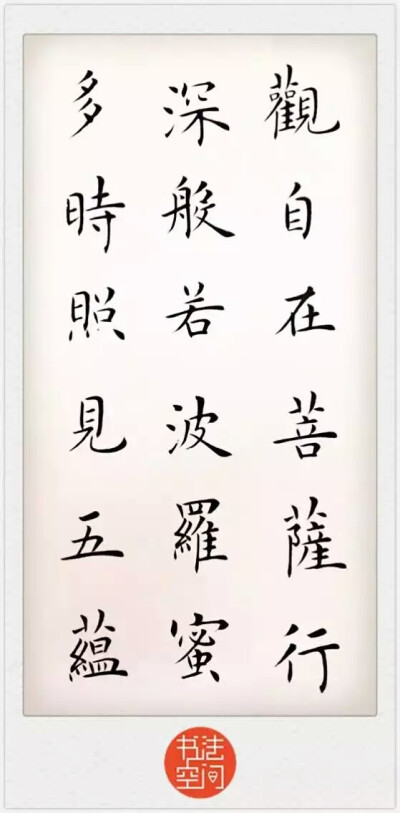 觀自在菩薩行
深般若波羅蜜
多時照見五蘊
书法
空间